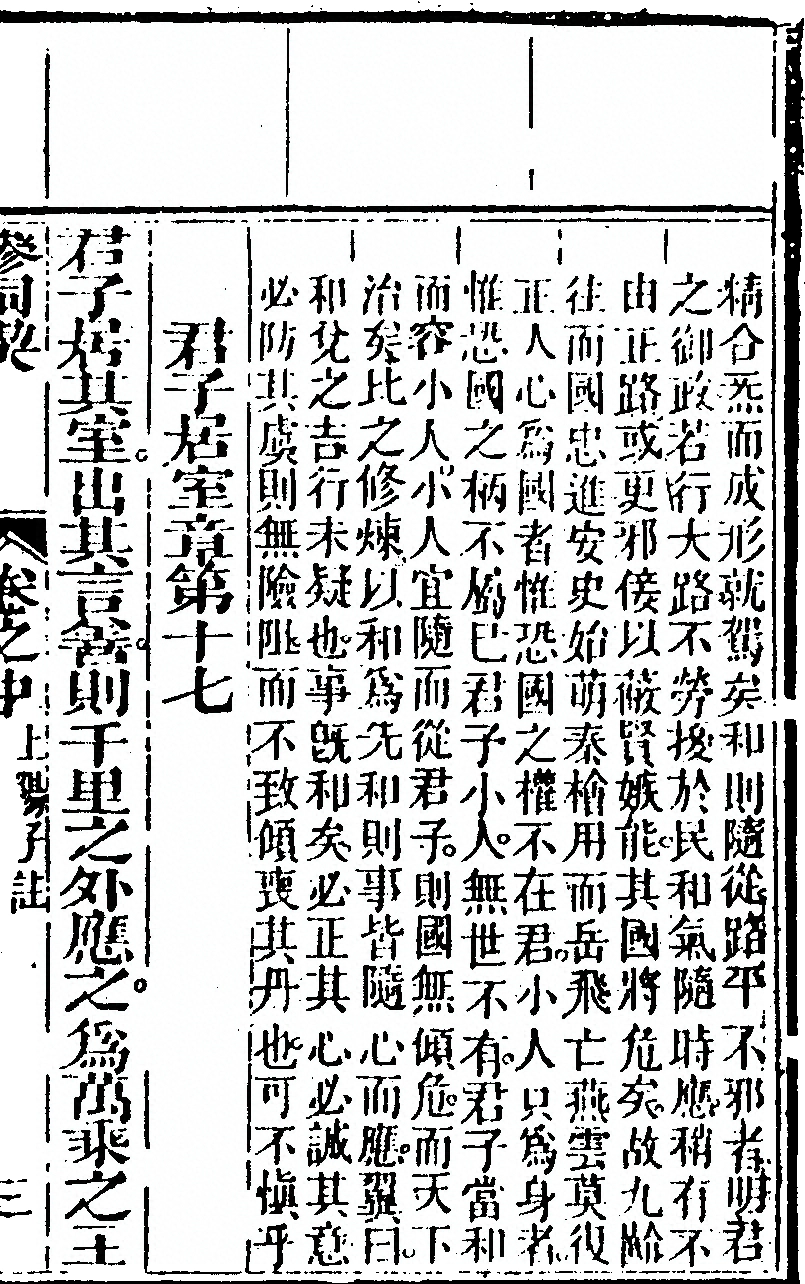 精合炁而成形就駕矣和則隨從路平不邪者明君
之御政若行大路不勞擾於民和氣隨時應稍有不
由正路或更邪佞以蔽賢嫉能其國將危矣故九齡
往而國忠進安史始萌秦檜用而岳飛亡燕雲莫復
正人心爲國者惟恐國之權不在君小人只爲身者
惟恐國之柄不屬已君子小人無世不有君子當和
而容小人小人宜隨而從君子則國無傾危而天下
治矣比之修煉以和爲先和則事皆隨心而應翼曰
和兌之吉行未疑也事旣和矣必正其心必誠其意
必防其虞則無險阻而不致傾喪其丹也可不愼乎
君子居室章第十七
君子居其室出其言善則千里之外應之爲萬乘之主
參同契 卷之中 上陽子註 三